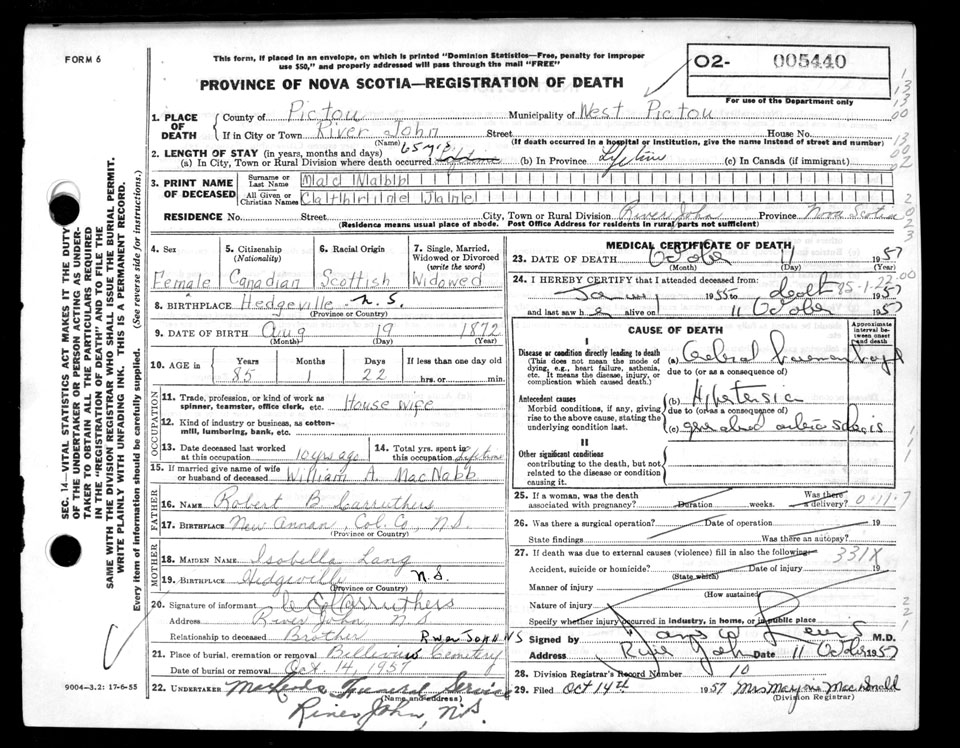 FORM 6
This form, if placed in an envelope, on which is printed "Dominion Statistics—Free, penalty for improper
use $50," and properly addressed will pass through the mail "FREE"
PROVINCE OF NOVA SCOTIA—REGISTRATION OF DEATH
O2- 005440
For use of the Department only
1. PLACE OF DEATH
County of Pictou Municipality of West Pictou
If in City or Town River John Street House No.
(Name) (If death occurred in a hospital or institution, give name instead of street and number)
2. LENGTH OF STAY (in years, months and days) 65 yrs
(a) In City, Town or Rural Division where death occurred (b) In Province Lifetime (c) In Canada (if immigrant)
3. PRINT NAME OF DECEASED
Surname or Last Name MacNabb
All Given or Christian Names Cathrine Jane
RESIDENCE No. Street City, Town or Rural Division River John Province Nova Scotia
(Residence means usual place of abode. Post Office Address for residents in rural parts not sufficient)
4. Sex Female
5. Citizenship (Nationality) Canadian
6. Racial Origin Scottish
7. Single, Married, Widowed or Divorced (write the word) Widowed
8. BIRTHPLACE Hedgeville N.S.
(Province or Country)
9. DATE OF BIRTH Aug 19 1872
(Month) (Day) (Year)
10. AGE in Years 85 Months 1 Days 22 If less than one day old hrs. or min.
OCCUPATION
11. Trade, profession, or kind of work as spinner, teamster, office clerk, etc. House wife
12. Kind of industry or business, as cotton-mill, lumbering, bank, etc.
13. Date deceased last worked at this occupation 10 yrs ago
14. Total yrs. spent in this occupation Lifetime
15. If married give name of wife or husband of deceased William A. MacNabb
FATHER
16. NAME Robert B Carruthers
17. BIRTHPLACE New Annan, Col. Co., N.S.
(Province or Country)
MOTHER
18. MAIDEN NAME Isobella Lang
19. BIRTHPLACE Hedgeville N.S.
(Province or Country)
20. Signature of informant Carruthers
Address River John, N S
Relationship to deceased Brother River John N S
21. Place of burial, cremation or removal Bellevue Cemetery
Date of burial or removal Oct. 14, 1957
22. UNDERTAKER McLeods Funeral Service
(Name and address)
River John, N.S.
9004-3.2: 17-6-55
MEDICAL CERTIFICATE OF DEATH
23. DATE OF DEATH October 11 1957
(Month) (Day) (Year)
24. I HEREBY CERTIFY that I attended deceased from:
1955 to death 1957
85-1-22.00
and last saw h alive on 11 October 1957
CAUSE OF DEATH
Approximate interval between onset and death
I
Disease or condition directly leading to death (a) Cerebral
(This does not mean the mode of dying, e.g., heart failure, asthenia, etc. It means the disease, injury, or complication which caused death.)
due to (or as a consequence of)
Antecedent causes (b) Hypertension
Morbid conditions, if any, giving rise to the above cause, stating the underlying condition last.
due to (or as a consequence of)
(c) generalized arteriosclerosis
II
Other significant conditions
contributing to the death, but not related to the disease or condition causing it.
25. If a woman, was the death associated with pregnancy? Duration weeks. Was there a delivery?
26. Was there a surgical operation? Date of operation 19
State findings Was there an autopsy?
27. If death was due to external causes (violence) fill in also the following:— 331X
Accident, suicide or homicide? Date of injury 19
(State which)
Manner of injury
(How sustained)
Nature of injury
Specify whether injury occurred in industry, in home, or in public place
Signed by M.D.
Address River John Date 11 October 1957
28. Division Registrar's Record Number 10
29. Filed Oct 14th 1957 Mrs Marjorie MacDonald
(Division Registrar)
SEC. 14—VITAL STATISTICS ACT MAKES IT THE DUTY
OF THE UNDERTAKER OR PERSON ACTING AS UNDER-
TAKER TO OBTAIN ALL THE PARTICULARS REQUIRED
IN THE "REGISTRATION OF DEATH" AND TO FILE THE
SAME WITH THE DIVISION REGISTRAR WHO SHALL ISSUE THE BURIAL PERMIT.
WRITE PLAINLY WITH UNFADING INK. THIS IS A PERMANENT RECORD.
Every item of information should be carefully supplied. (See reverse side for instructions.)